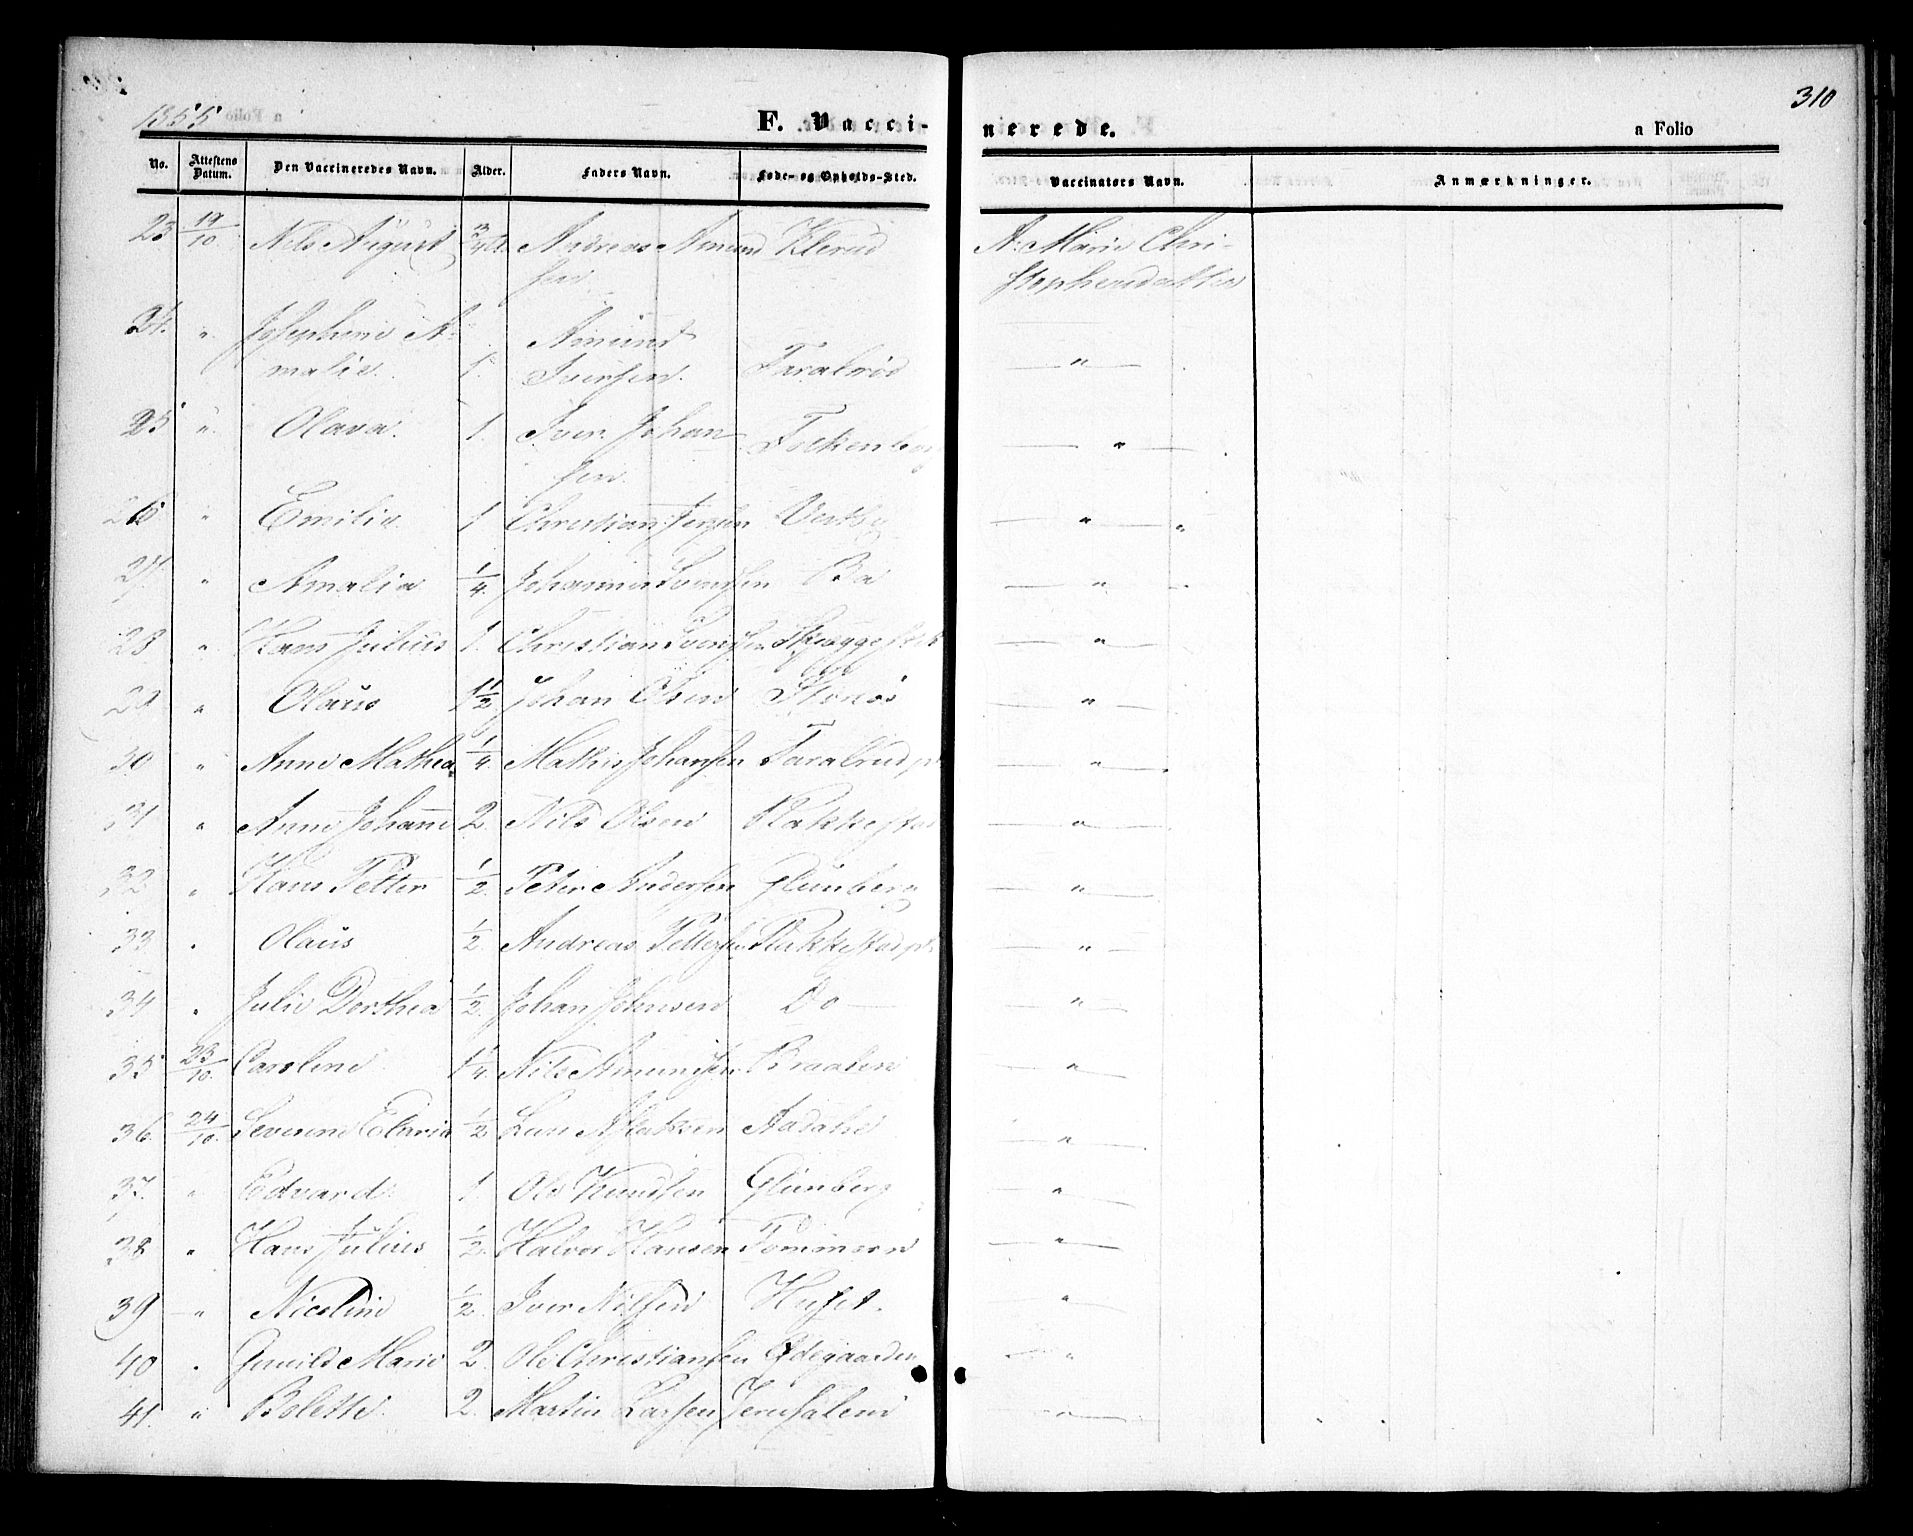 310
1855
F. Vacci-
nerede.
a Folio
No. Attestens Datum. Den Vaccineredes Navn. Alder. Faders Navn. Føde- og Opholds-Sted. Vaccinators Navn. Anmærkninger.
23 19/10 Nils August Andreas Amund Klerud A: Marie Chri-
sen stophersdatter
24. " Josephine A- Amund
malie. 1. Iversen. Taralrød "
25 " Olava. 1. Iver Johan "
sen.
26 " Emilie 1 Christian Jensen Vestby "
27. " Amalia 1/4 Johannes Svensen Bø "
28 " Hans Julius 1. Christian Svensen "
29 " Olaus 1 1/2 Johan Olsen "
30 " Anne Mathea 1/4 Mathis Johansen Taralrud "
31 " Anne Johanne 2 Nils Olsen Rakkestad "
32 " Hans Petter 1/2 Peter Andersen Glünberg "
33 " Olaus 1/2 Andreas Petters Rakkestad "
34 " Julie Dorthea 1/2 Johan Johnsen Do "
35 23/10 Caroline 1 1/4 Nils Amundsen Braaten "
36. 24/10 Severine 1/2 Lars Aslaksen "
37. " Edvard 1 Ole Knudsen Glünberg "
38 " Hans Julius 1/2 Halvor Hansen Tømmern "
39 " Nicoline 1/2 Iver Nilsen Huset. "
40 " Gunild Marie 2 Ole Christiansen Ødegaarden "
41. " Bolette 2 Martin Larsen Jerusalem "